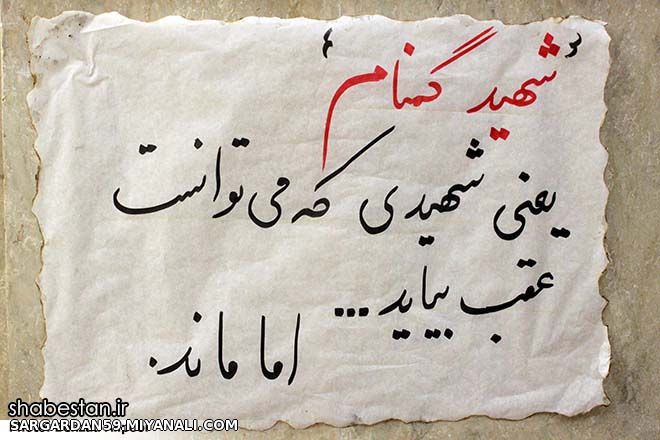 «شهید گمنام»
یعنی شهیدی که می‌توانست
عقب بیاید...
اما ماند.
shabestan.ir
SARGARDAN59,MIYANALI.COM